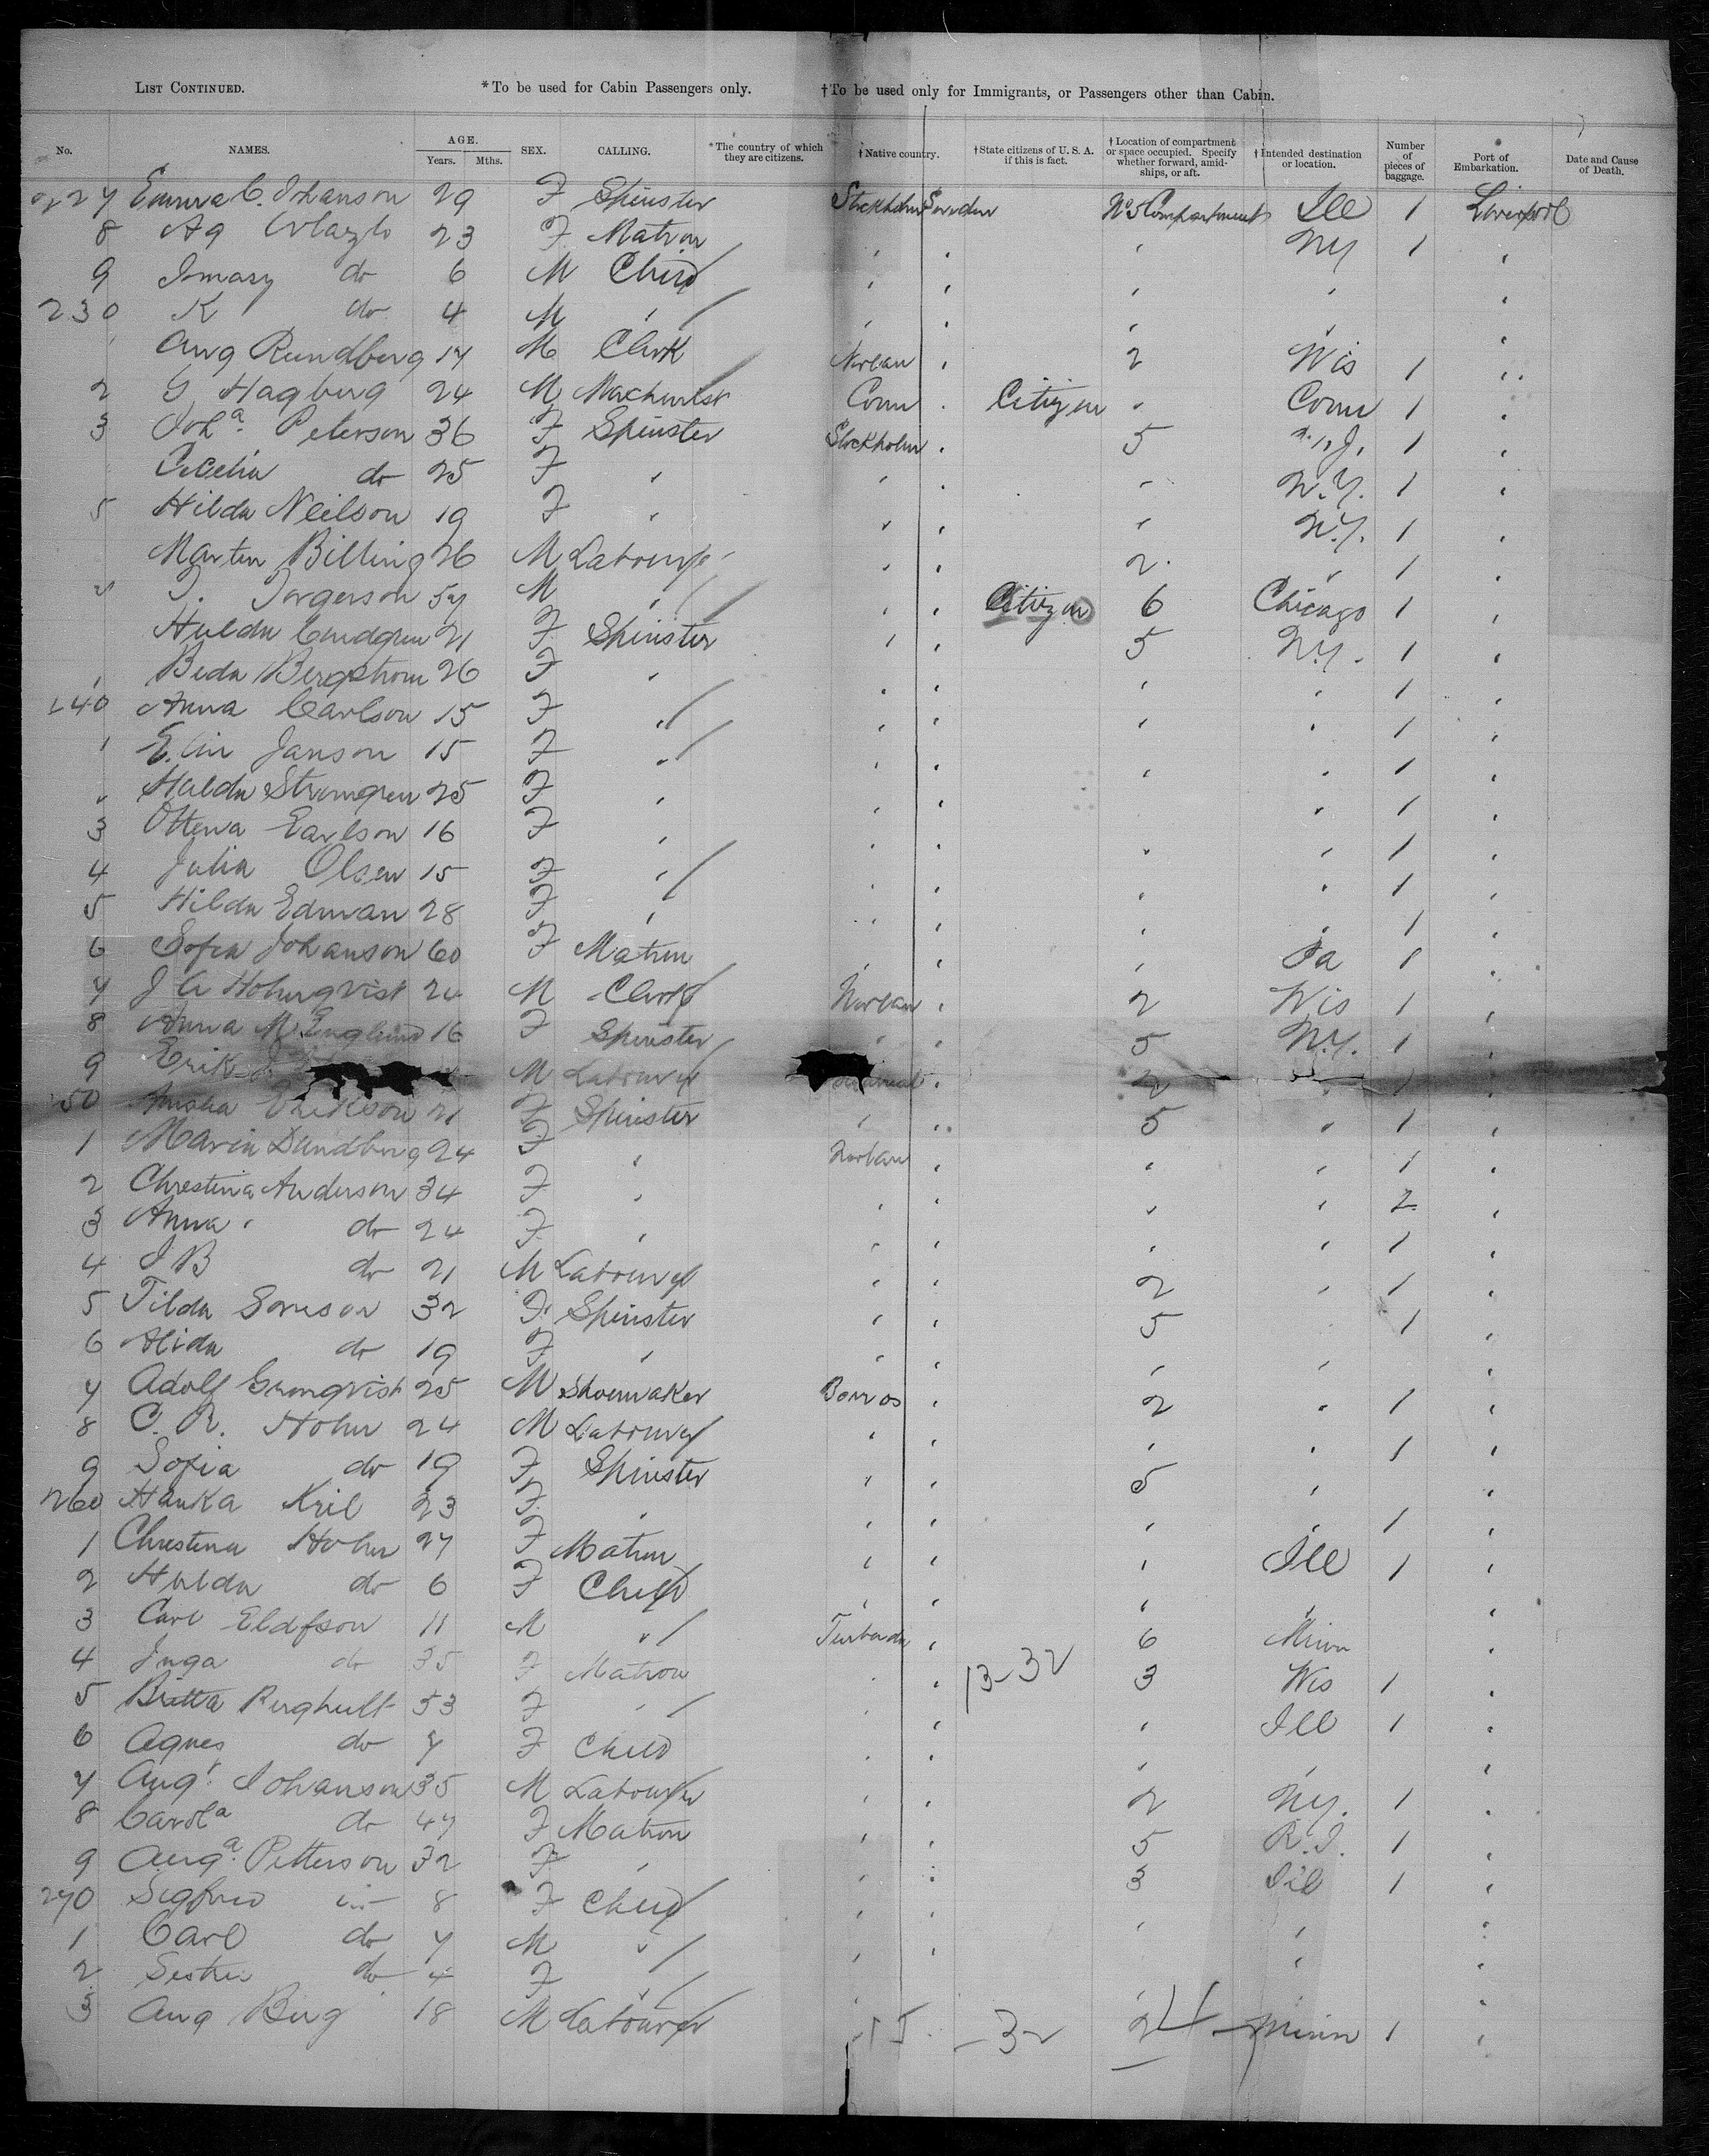 LIST CONTINUED. *To be used for Cabin Passengers only. †To be used only for Immigrants, or Passengers other than Cabin.
No. NAMES. AGE. Years. Mths. SEX. CALLING. *The country of which they are citizens. †Native country. †State citizens of U. S. A. if this is fact. †Location of compartment or space occupied. Specify whether forward, amidships, or aft. †Intended destination or location. Number of pieces of baggage. Port of Embarkation. Date and Cause of Death.
227 Emma C. Johanson 29 F Spinster Stockholm Sweden No 5 Compartment Ill 1 Liverpool
8 Ag 23 F Matron " " " NY 1 "
9 do 6 M Child " " " " "
230 K do 4 M " " " " " "
Aug Rundberg 17 M Clerk Norlan " 2 Wis 1 "
2 G Hagberg 24 M Machinist Conn " Citizen " Conn 1 "
3 Joha. Peterson 36 F Spinster Stockholm " 5 N.J. 1 "
Cecelia do 25 F " " " " N.Y. 1 "
5 Hilda Neilson 19 F " " " " N.Y. 1 "
Marten Billing 26 M Labourer " " 2 " 1 "
T. Torgerson 57 M " " " Citizen 6 Chicago 1 "
Hulda Lundgren 21 F Spinster " " 5 N.Y. 1 "
Beda Bergstrom 26 F " " " " " 1 "
240 Anna Carlson 15 F " " " " 1 "
1 Elin Janson 15 F " " " " " 1 "
Hulda Stromgren 25 F " " " " 1 "
3 Ottewa Earlson 16 F " " " " " 1 "
4 Julia Olsen 15 F " " " " " 1 "
5 Hilda Edman 28 F " " " " 1 "
6 Sofia Johanson 60 F Matron " " " Pa 1 "
7 J A Holmqvist 24 M Clerk Norlan " 2 Wis 1 "
8 Anna M Englund 16 F Spinster " " 5 N.Y. 1 "
9 Erik M Labourer " 2 1 "
50 Erikson 21 F Spinster " " 5 " 1 "
1 Maria Sundberg 24 F " Norlan " " " 1 "
2 Chrestina Anderson 34 F " " " " " 2 "
3 Anna do 24 F " " " " " 1 "
4 J B do 21 M Labourer " " 2 " 1 "
5 Tilda Sorreson 32 F Spinster " " 5 1 "
6 Alida do 19 F " " " " " "
7 Adolf Grongvist 25 M Shoemaker Borros " 2 " 1 "
8 C. R. Holm 24 M Labourer " " " " 1 "
9 Sofia do 19 F Spinster " " 5 " "
260 Hanka Kril 23 F " " " " " 1 "
1 Chrestina Holm 27 F Matron " " " Ill 1 "
2 Hulda do 6 F Child " " " " "
3 Carl Eldfson 11 M " " 6 Minn "
4 Inga do 35 F Matron " " 13-32 3 Wis 1 "
5 Britta Berghult 53 F " " " " Ill 1 "
6 Agnes do 7 F Child " " " " "
7 Augt. Johanson 35 M Labourer " " 2 NY. 1 "
8 Carola do 47 F Matron " " 5 R.I. 1 "
9 Auga. Petterson 32 F " " " 3 Ill 1 "
270 Sigfrid do 8 F Child " " " " "
1 Carl do 7 M " " " " "
2 do 4 F " " " "
3 Aug Berg 18 M Labourer 15 - 32 24 Minn 1 "